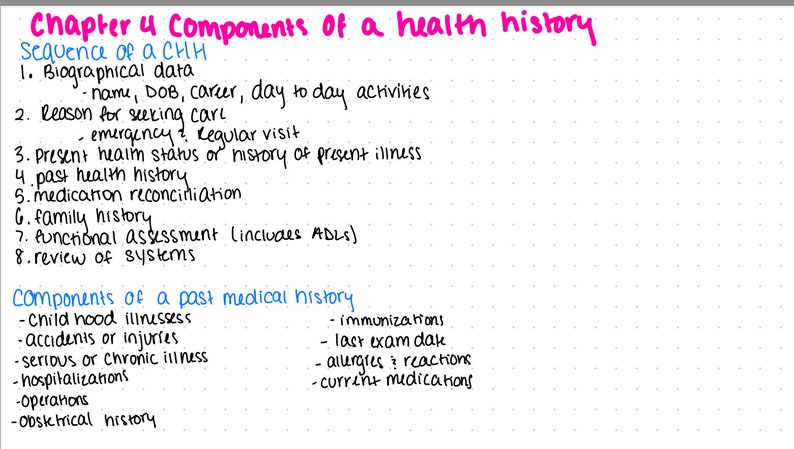 Chapter 4 Components of a health history
Sequence of a CHH
1. Biographical data
- name, DOB, career, day to day activities
2. Reason for seeking care
- emergency & Regular visit
3. Present health status or history of present illness
4. past health history
5. medication reconciniation
6. family history
7. functional assessment (includes ADLs)
8. review of systems
Components of a past medical history
- Childhood illnessess
- accidents or injuries
- serious or chronic illness
- hospitalizations
- Operations
- Obstetrical history
- immunizations
- last exam date
- allergies & reactions
- current medications